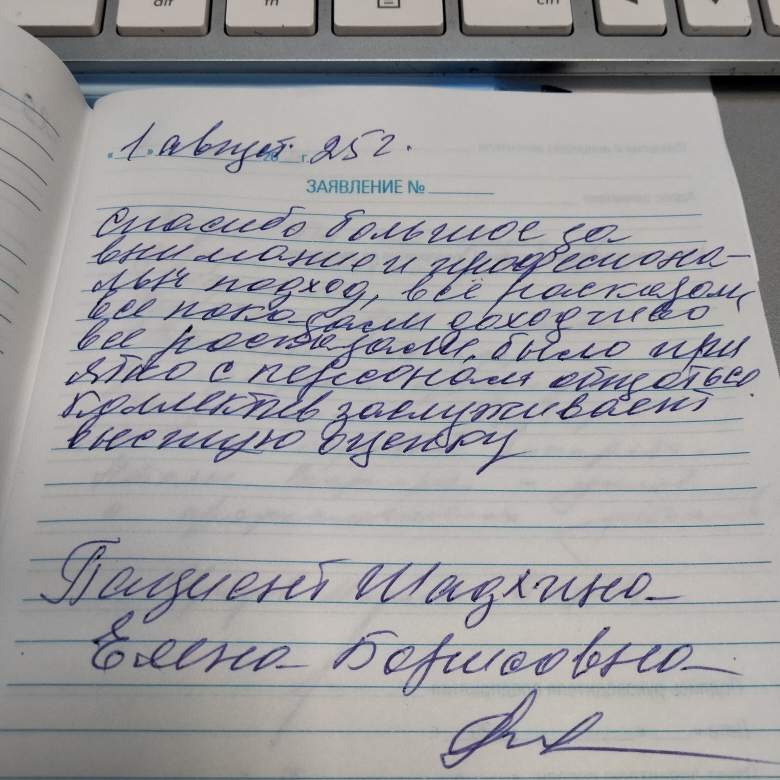 alt
fn
ctrl
1 август. 25 г.
ЗАЯВЛЕНИЕ №
спасибо большое за
внимание и професиона-
льн подход, всё расказали,
все показали доходчиво
все росказали, было при
ятно с персоналом общаться
Коллектив заслуживает
высшую оценку
Пациент Шадхина
Елена Борисовна